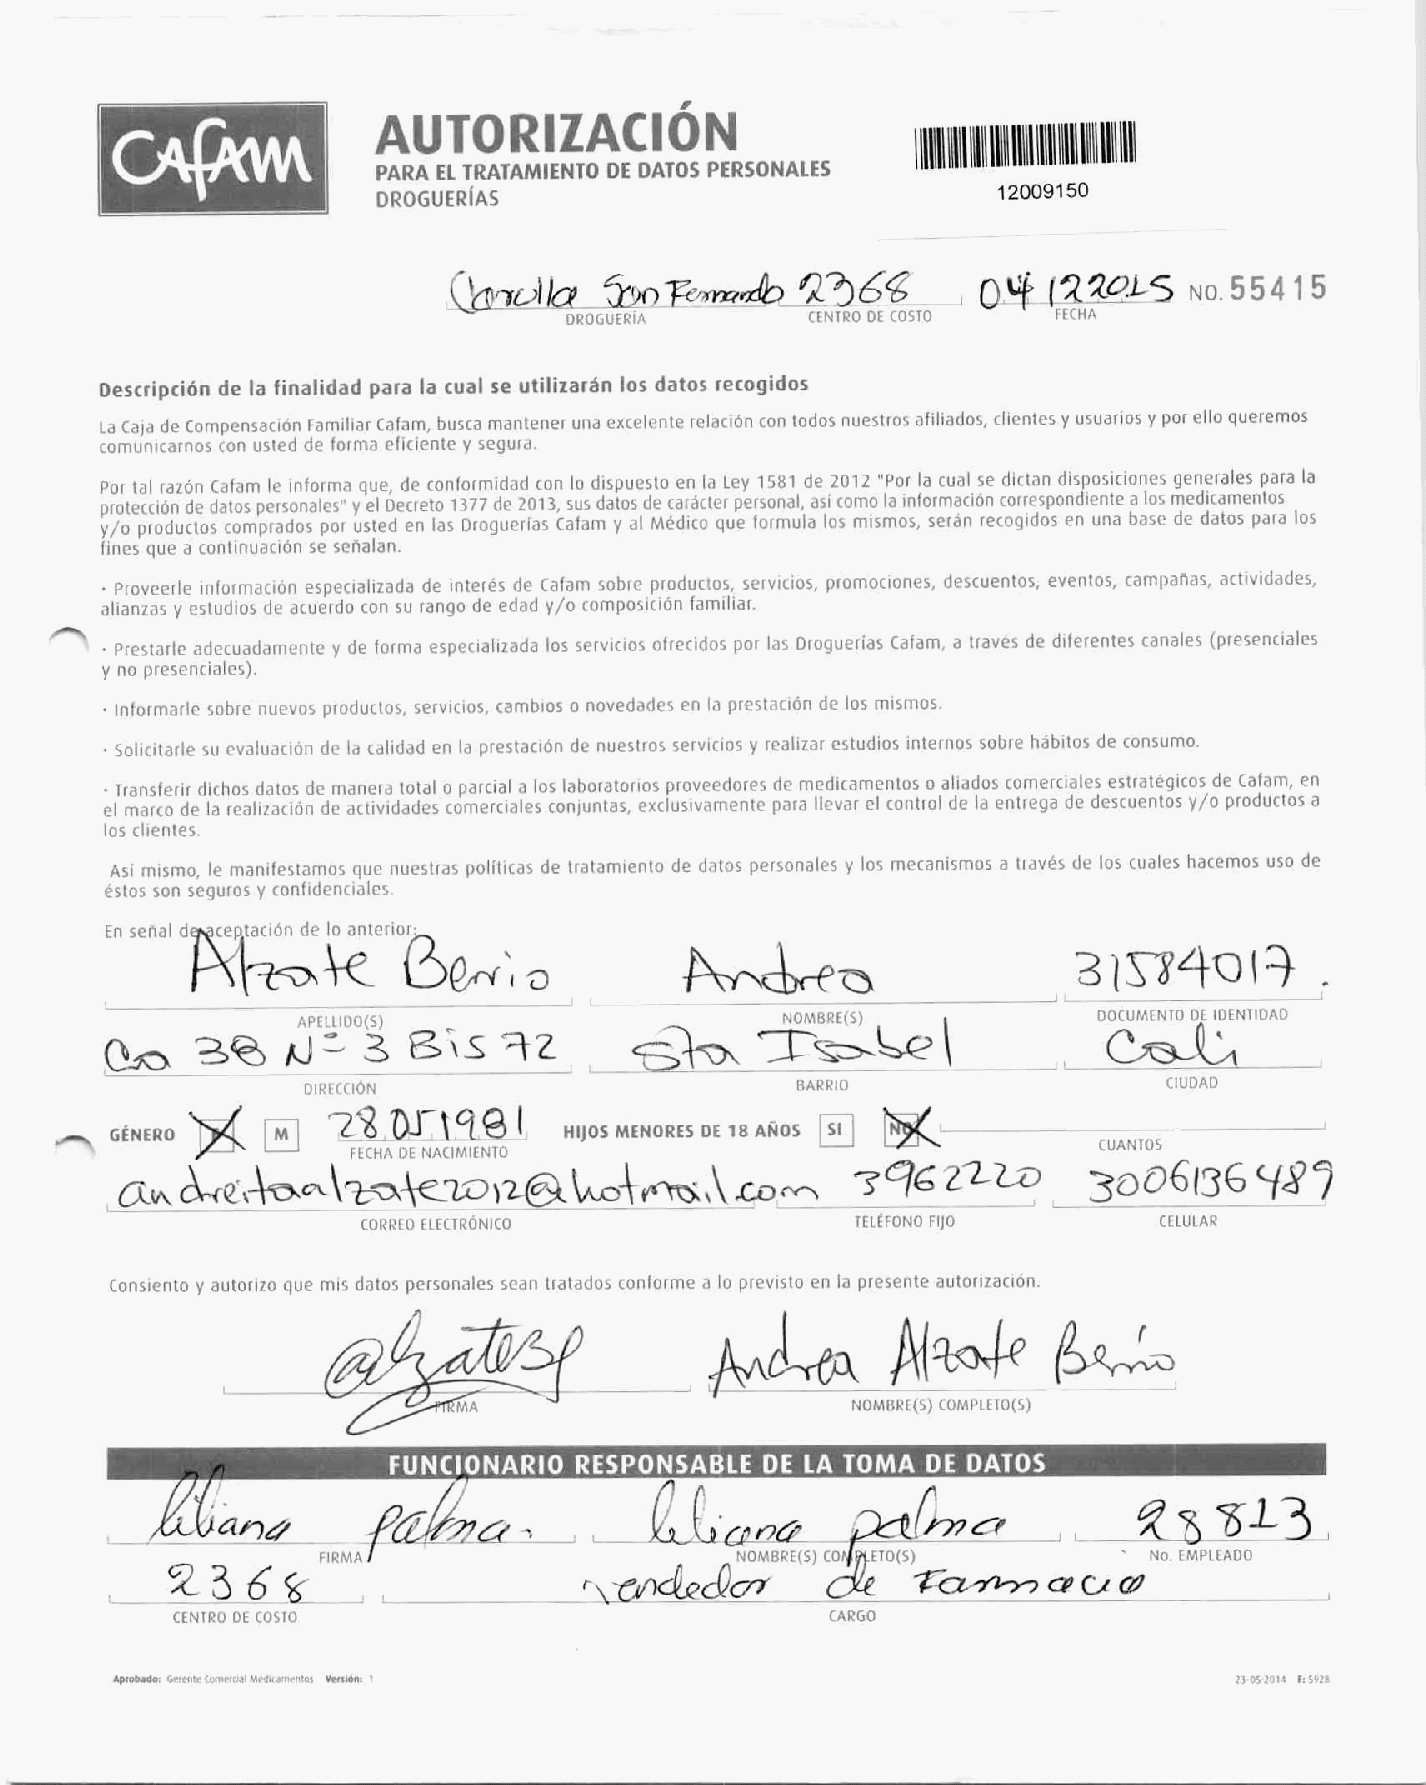 CAFAM
AUTORIZACIÓN
PARA EL TRATAMIENTO DE DATOS PERSONALES
DROGUERÍAS
12009150
San Fernando 2368 04 12 2015 NO. 55415
DROGUERÍA CENTRO DE COSTO FECHA
Descripción de la finalidad para la cual se utilizarán los datos recogidos
La Caja de Compensación Familiar Cafam, busca mantener una excelente relación con todos nuestros afiliados, clientes y usuarios y por ello queremos
comunicarnos con usted de forma eficiente y segura.
Por tal razón Cafam le informa que, de conformidad con lo dispuesto en la Ley 1581 de 2012 "Por la cual se dictan disposiciones generales para la
protección de datos personales" y el Decreto 1377 de 2013, sus datos de carácter personal, así como la información correspondiente a los medicamentos
y/o productos comprados por usted en las Droguerías Cafam y al Médico que formula los mismos, serán recogidos en una base de datos para los
fines que a continuación se señalan.
· Proveerle información especializada de interés de Cafam sobre productos, servicios, promociones, descuentos, eventos, campañas, actividades,
alianzas y estudios de acuerdo con su rango de edad y/o composición familiar.
· Prestarle adecuadamente y de forma especializada los servicios ofrecidos por las Droguerías Cafam, a través de diferentes canales (presenciales
y no presenciales).
· Informarle sobre nuevos productos, servicios, cambios o novedades en la prestación de los mismos.
· Solicitarle su evaluación de la calidad en la prestación de nuestros servicios y realizar estudios internos sobre hábitos de consumo.
· Transferir dichos datos de manera total o parcial a los laboratorios proveedores de medicamentos o aliados comerciales estratégicos de Cafam, en
el marco de la realización de actividades comerciales conjuntas, exclusivamente para llevar el control de la entrega de descuentos y/o productos a
los clientes.
Así mismo, le manifestamos que nuestras políticas de tratamiento de datos personales y los mecanismos a través de los cuales hacemos uso de
éstos son seguros y confidenciales.
En señal de aceptación de lo anterior:
Alzate Berrio Andrea 31584017.
APELLIDO(S) NOMBRE(S) DOCUMENTO DE IDENTIDAD
Cra 38 Nº 3 Bis 72 Sta Isabel Cali
DIRECCIÓN BARRIO CIUDAD
GÉNERO M 28 05 1981 HIJOS MENORES DE 18 AÑOS SI NO
FECHA DE NACIMIENTO CUANTOS
andreitaalzate2012@hotmail.com 3962220 3006136489
CORREO ELECTRÓNICO TELÉFONO FIJO CELULAR
Consiento y autorizo que mis datos personales sean tratados conforme a lo previsto en la presente autorización.
Andrea Alzate Berrio
FIRMA NOMBRE(S) COMPLETO(S)
FUNCIONARIO RESPONSABLE DE LA TOMA DE DATOS
liliana palma. liliana palma 28813
FIRMA NOMBRE(S) COMPLETO(S) No. EMPLEADO
2368 vendedor de Farmacia
CENTRO DE COSTO CARGO
Aprobado: Gerente Comercial Medicamentos Versión: 1 23-05-2014 F: 5928